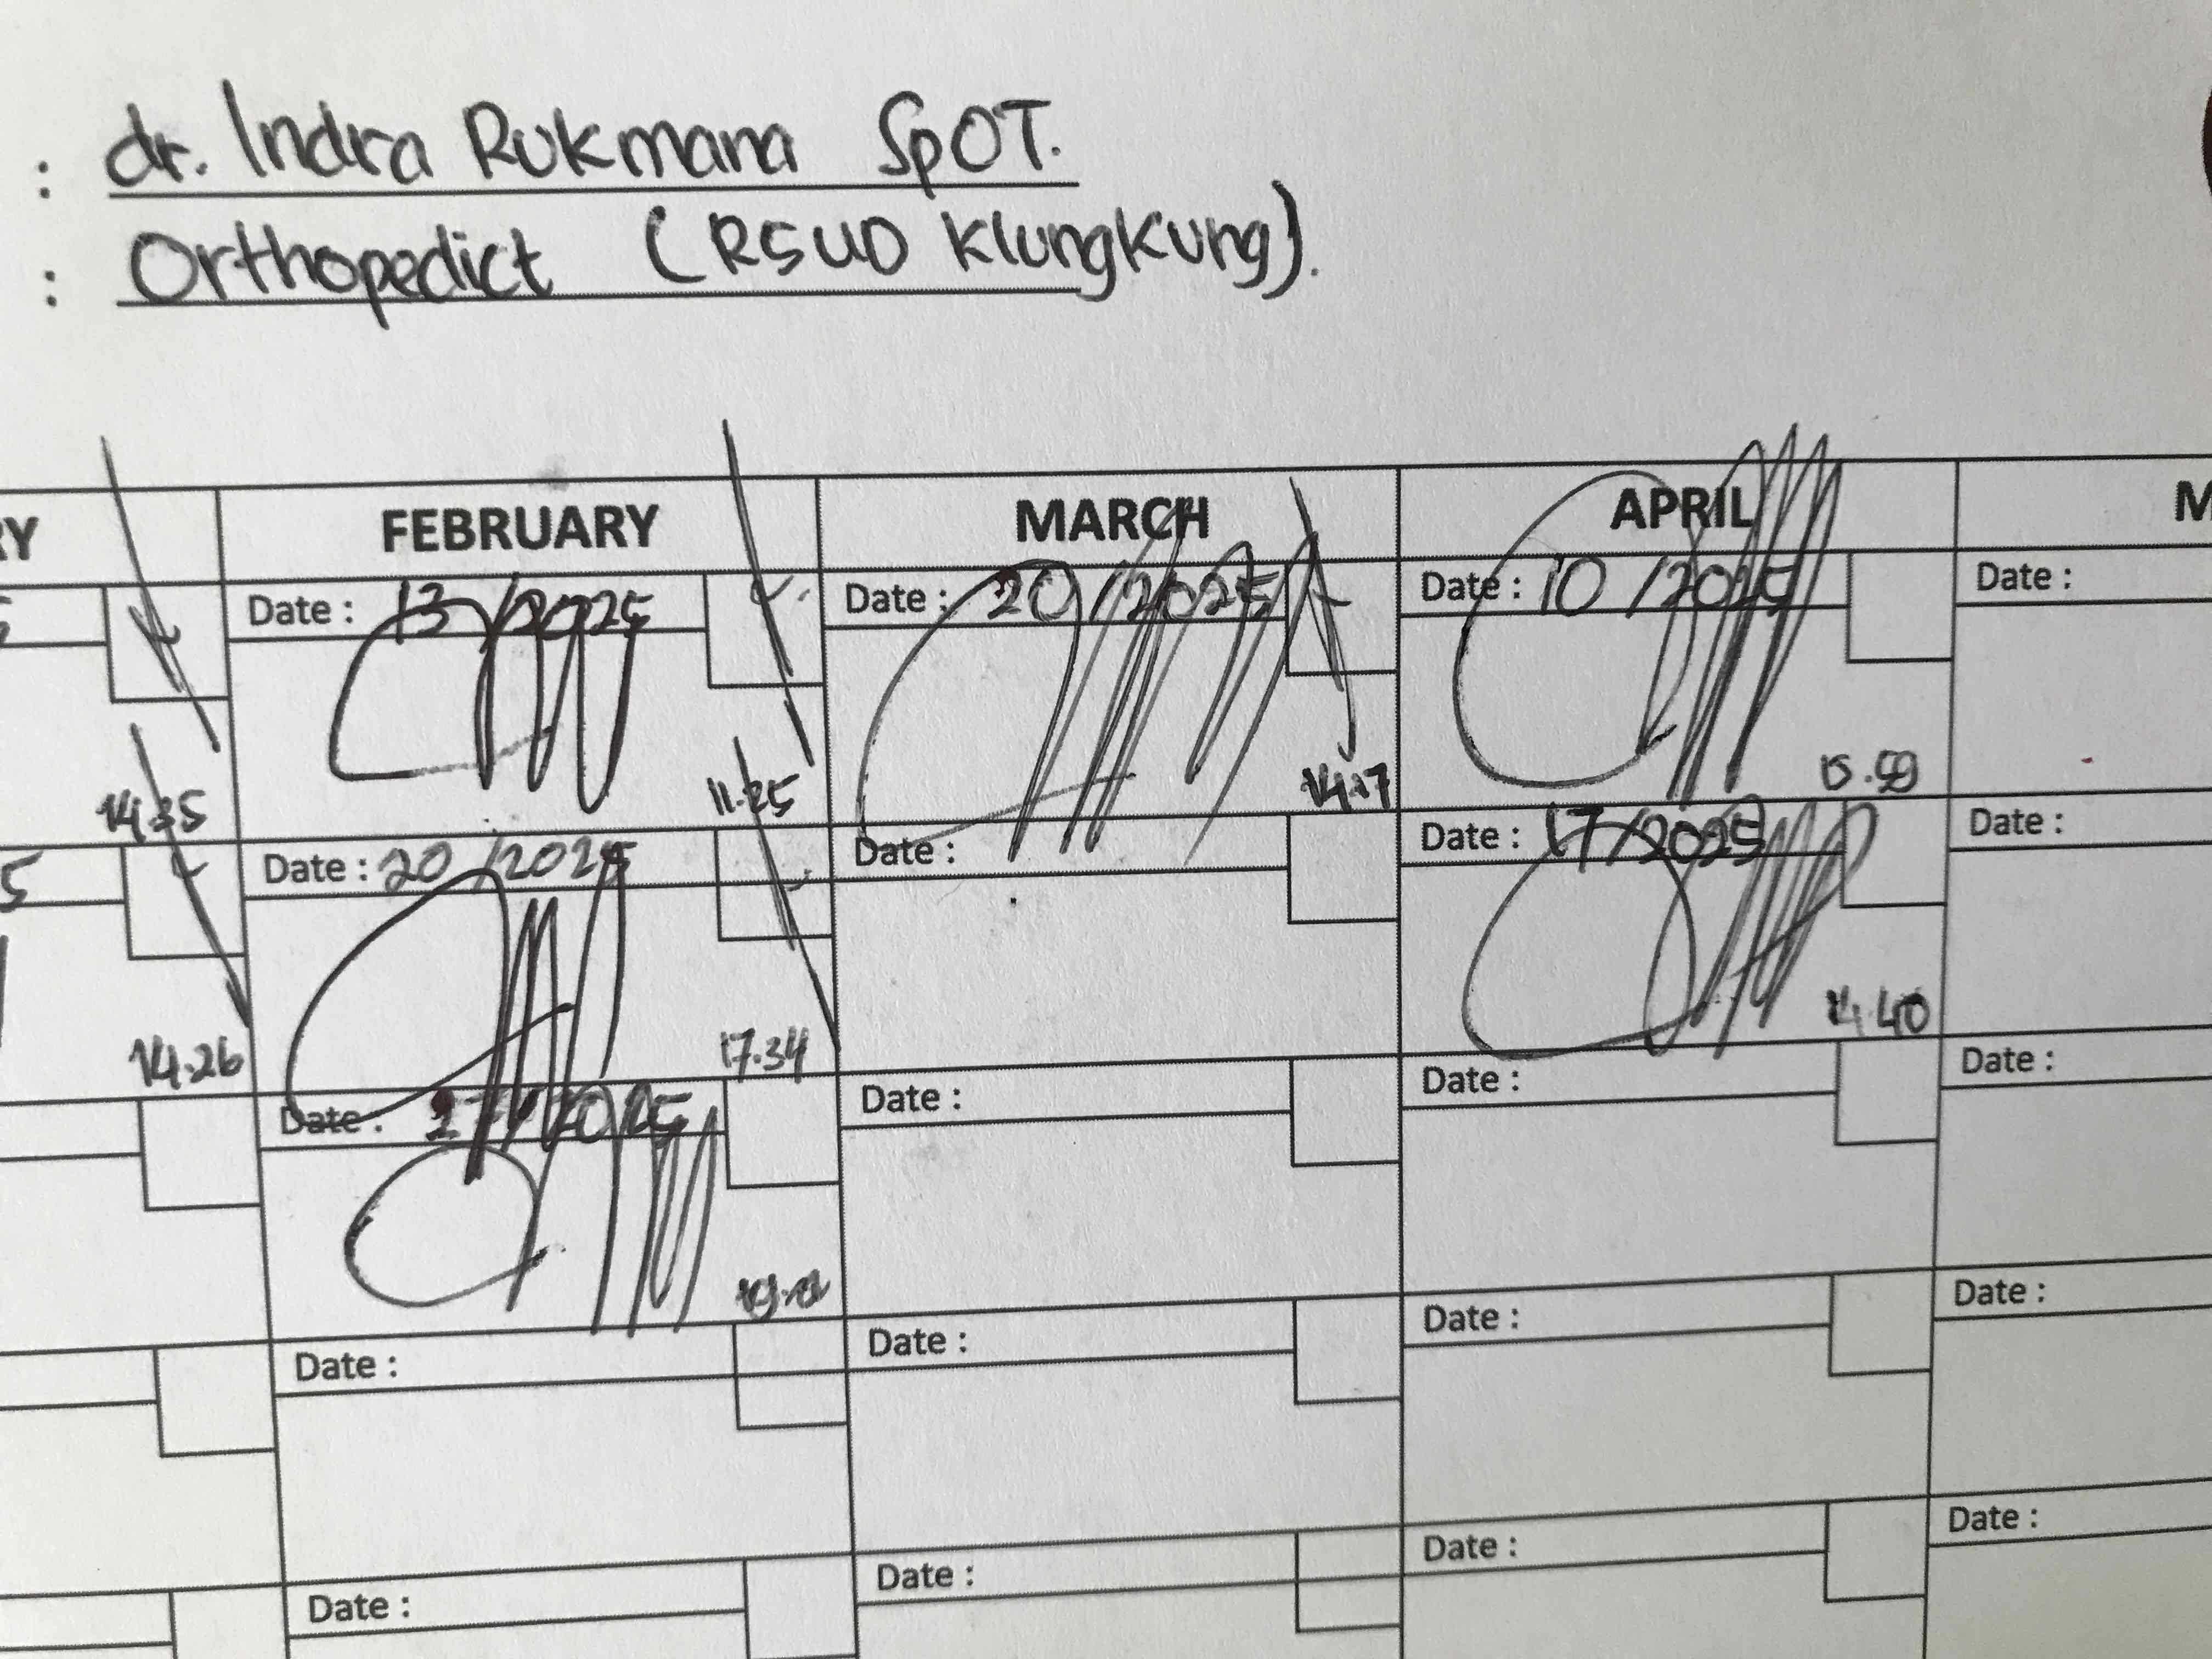 : dr. Indra Rukmana SpOT.
: Orthopedict (RSUD Klungkung).
RY FEBRUARY MARCH APRIL M
5 Date : 13 /2025 Date : 20 /2025 Date : 10 /2025 Date :
14.35 11.25 14.17 15.59
5 Date : 20 /2025 Date : Date : 17/2025 Date :
14.26 17.34 14.40
Date : 27 /2025 Date : Date : Date :
Date : Date : Date : Date :
Date : Date : Date : Date :